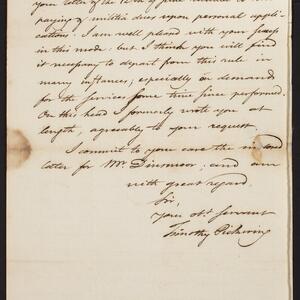 your letter of the 12th of June relative to the
paying of militia dues upon personal appli-
cation: I am well pleased with your
in this mode: but I think you will find
it necessary to depart from this rule in
many instances; especially on demands
for the services some time since performed.
On this head I formerly wrote you at
length, agreeably to your request.
I commit to your care the inclosed
letter for Mr. Dinsmoor; and am
with great regard,
Sir,
your obt. servant
Timothy Pickering